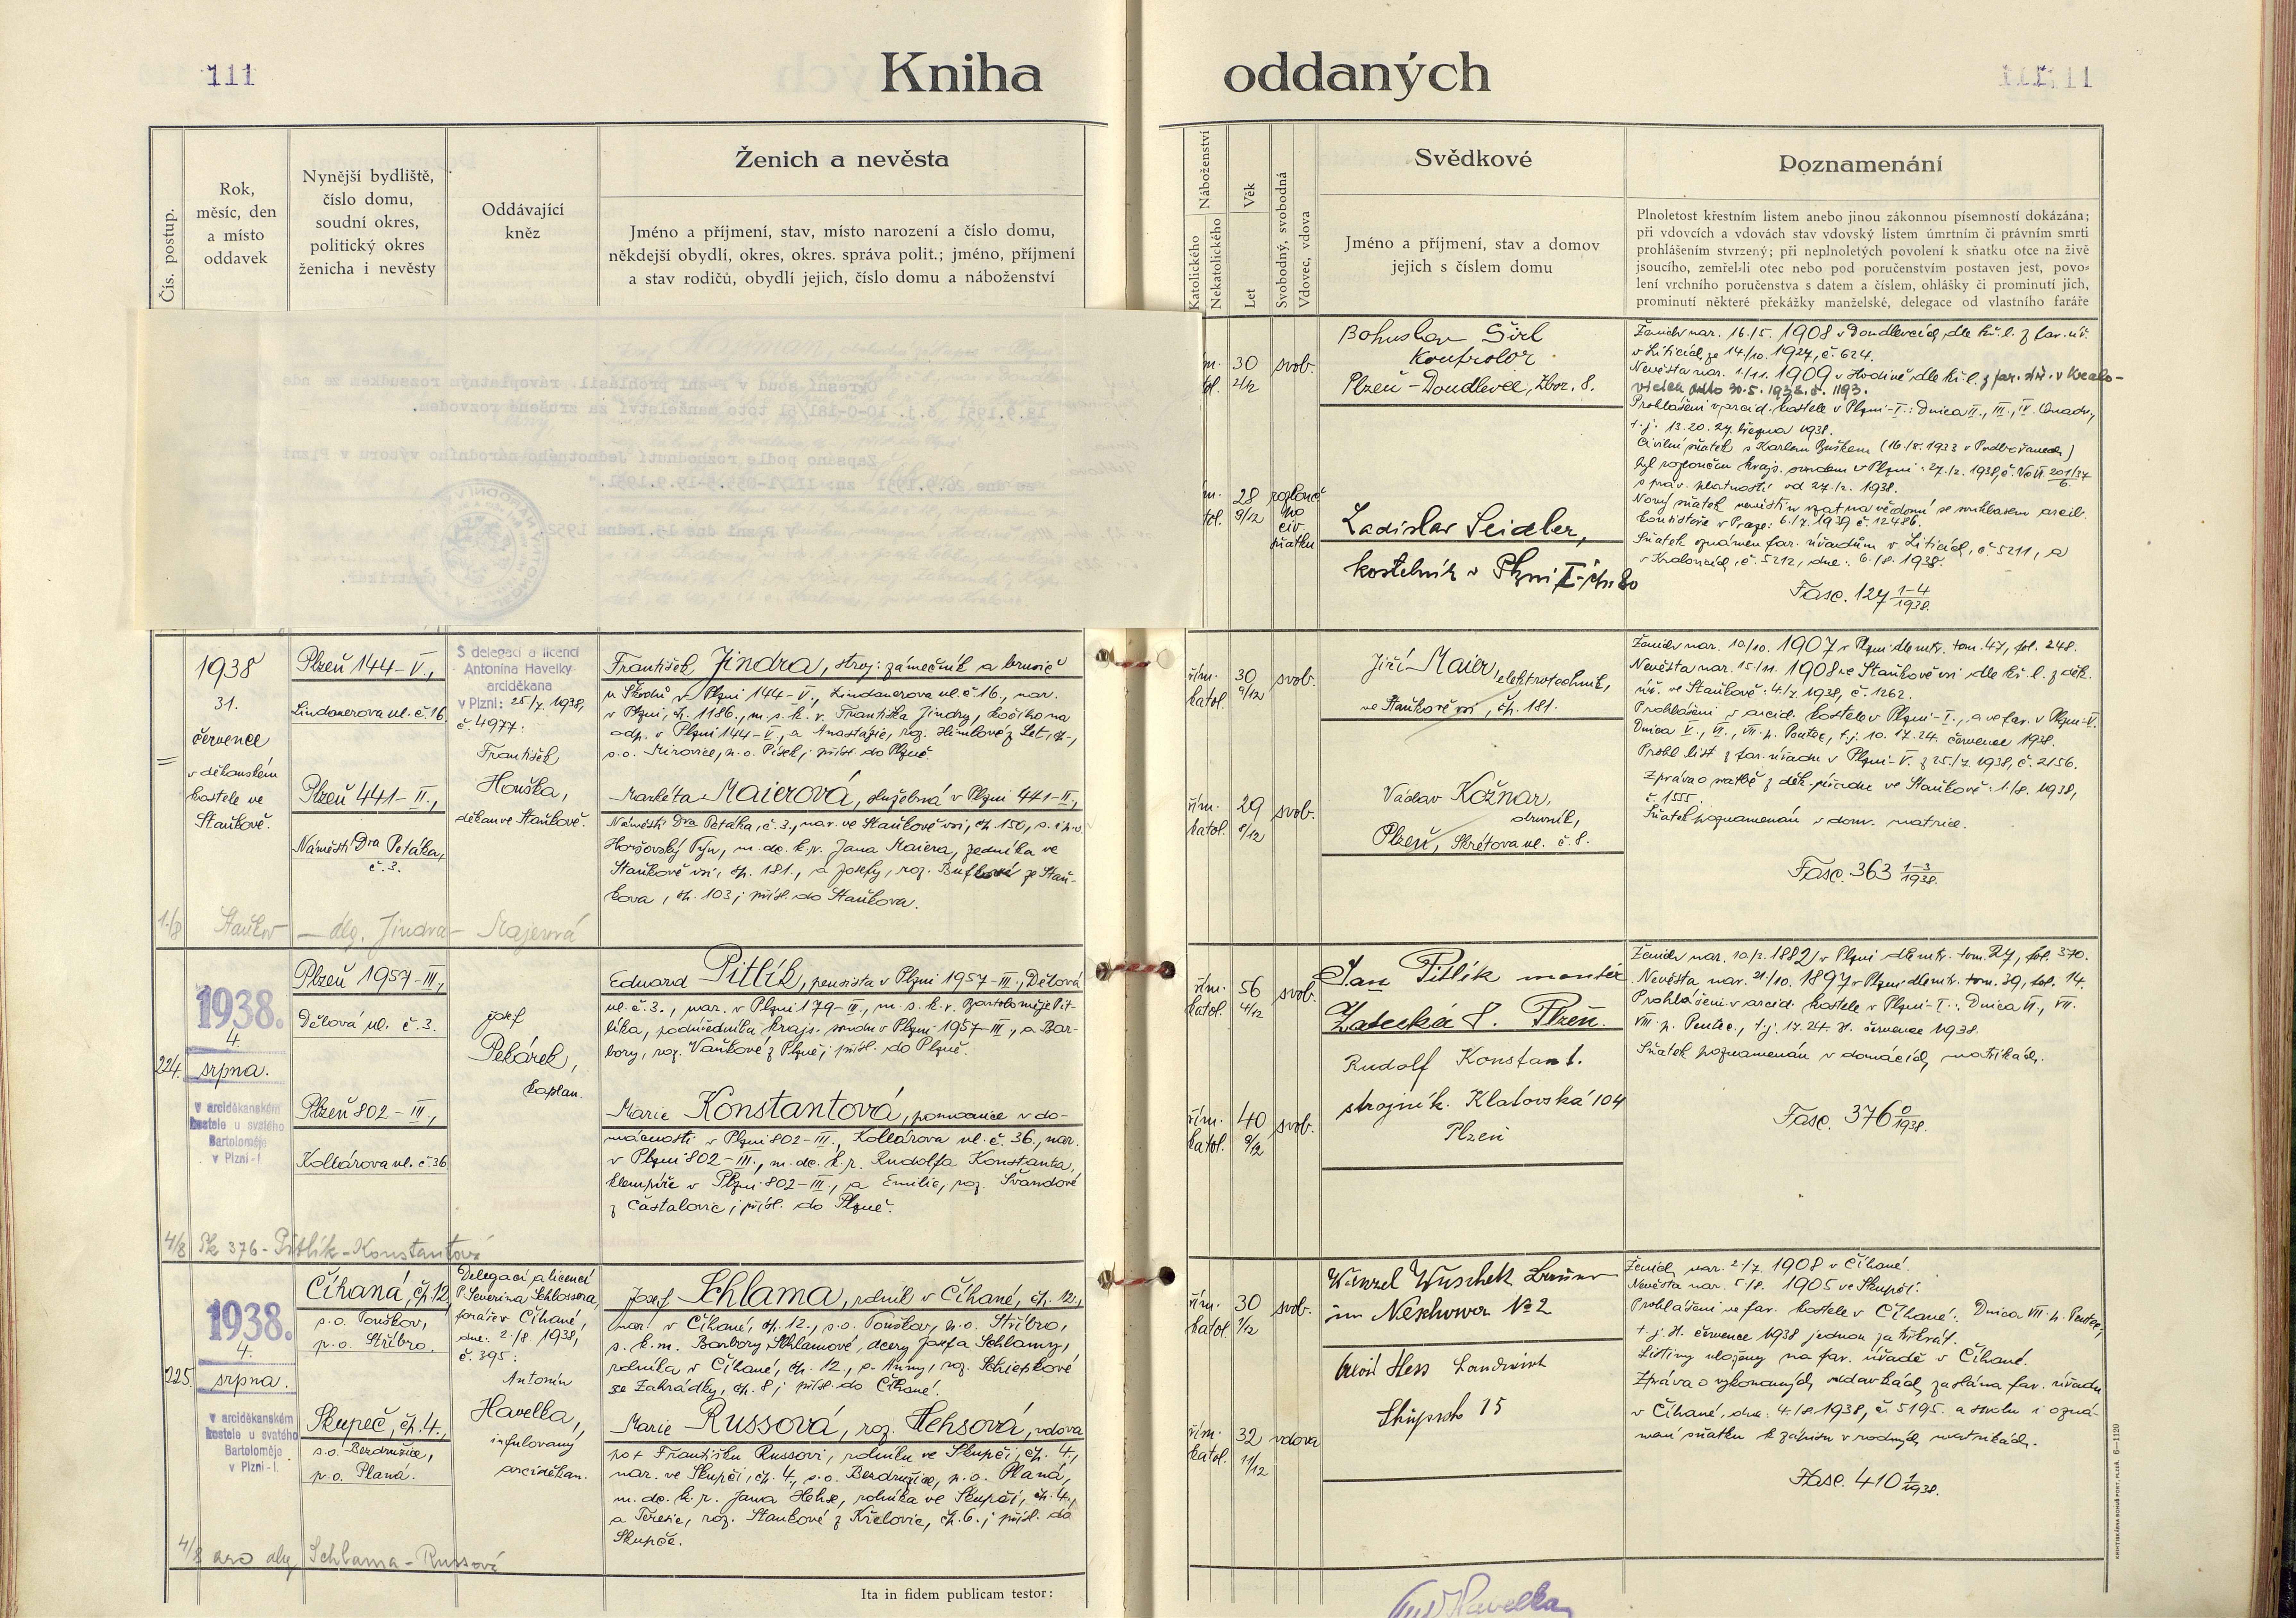 111
Kniha
oddaných
Čís. postup.
Rok,
měsíc, den
a místo
oddavek
Nynější bydliště,
číslo domu,
soudní okres,
politický okres
ženicha i nevěsty
Oddávající
kněz
Ženich a nevěsta
Jméno a příjmení, stav, místo narození a číslo domu,
někdejší obydlí, okres, okres. správa polit.; jméno, příjmení
a stav rodičů, obydlí jejich, číslo domu a náboženství
Náboženství
Katolického
Nekatolického
Věk
Let
Svobodný, svobodná
Vdovec, vdova
Svědkové
Jméno a příjmení, stav a domov
jejich s číslem domu
Poznamenání
Plnoletost křestním listem anebo jinou zákonnou písemností dokázána;
při vdovcích a vdovách stav vdovský listem úmrtním či právním smrti
prohlášením stvrzený; při neplnoletých povolení k sňatku otce na živě
jsoucího, zemřel-li otec nebo pod poručenstvím postaven jest, povo-
lení vrchního poručenstva s datem a číslem, ohlášky či prominutí jich,
prominutí některé překážky manželské, delegace od vlastního faráře
30
2/12
svob.
28
9/12
civ.
sňatku
Bohuslav Širl
Kontrolor
Plzeň - Doudlevce, Zbor. 8.
Ladislav Seidler,
kostelník v Plzni I
Ženich nar. 16./5. 1908 v Doudlevcích, dle kř. l. z far. úř.
v Liticích ze 14./10. 1927, č. 624.
Nevěsta nar. 1./11. 1909 v Hodíně, dle kř. l. z far. úř. v Kralo-
vicích 30.5.1938. č. 1193.
Prohlášeni v arcid. kostele v Plzni-I.: Dnica II., III., IV. Quadr.,
t. j. 13. 20. 27. března 1938.
Civilní sňatek s Karlem
byl rozloučen krajs. soudem v Plzni
s práv. platností od 27./2. 1938.
Nový sňatek
konsistoře v Praze:
Sňatek oznámen far. úřadům v Liticích, č. 5211, a
v Kralovicích, č. 5212, dne: 6./8. 1938.
Fasc. 127 1-4/1938.
1938
31.
července
v děkanském
kostele ve
Staňkově.
Plzeň 144-V.,
Lindauerova ul. č. 16
Plzeň 441-II.,
Náměstí Dra Petáka,
č. 3.
S delegací a licencí
Antonína Havelky
arciděkana
v Plzni: 25/7. 1938,
č. 4977:
František
Houška,
děkan ve Staňkově.
František Jindra, stroj. zámečník a brusič
u Škodů v Plzni 144-V., Lindauerova ul. č. 16., nar.
v Plzni, čp. 1186., m. s. k. v. Františka Jindry, kočího na
odp. v Plzni 144-V., a Anastazie, roz.
s. o. Mirovice, p. o. Písek; přísl. do Plzně.
Markéta Maierová, služebná v Plzni 441-II.,
Náměstí Dra Petáka, č. 3., nar. ve Staňkově vsi, čp. 150,
Horšovský Týn, m. dc. k. p. Jana Maiera, zedníka ve
Staňkově vsi, čp. 181., a Josefy, roz.
kova, čp. 103; přísl. do Staňkova.
řím.
katol.
30
9/12
svob.
řím.
katol.
29
8/12
svob.
Jiří Maier, elektrotechnik,
ve Staňkově vsi, čp. 181.
Václav Kožnar,
Plzeň, Skrétova ul. č. 8.
Ženich nar. 10/10. 1907 v Plzni dle mtr. tom. 47, fol. 248.
Nevěsta nar. 15/11. 1908 ve Staňkově vsi dle kř. l. z děk.
úř. ve Staňkově: 4./7. 1938, č. 1262.
Prohlášeni v arcid. kostele v Plzni-I., a ve far. v Plzni-V.
Dnica V., VI., VII. p. Pentec., t. j. 10. 17. 24. července 1938.
Prohl. list z far. úřadu v Plzni-V. z 25./7. 1938, č. 2156.
Zpráva o svatbě z děk. úřadu ve Staňkově: 1./8. 1938,
č. 1555.
Sňatek poznamenán v dom. matrice.
Fasc. 363 1-3/1938.
1./8 Staňkov - dlg. Jindra - Majerová
224.
1938.
4.
srpna.
v arciděkanském
kostele u svatého
Bartoloměje
v Plzni-I.
Plzeň 1957-III.,
Dělová ul. č. 3.
Plzeň 802-III.,
Kollárova ul. č. 36
Josef
Pekárek,
kaplan.
Eduard Pitlík, pensista v Plzni 1957-III., Dělová
ul. č. 3., nar. v Plzni 179-III., m. s. k. v. Bartoloměje Pit-
líka, podúředníka krajs. soudu v Plzni 1957-III., a Bar-
bory, roz. Vaňkové z Plzně; přísl. do Plzně.
Marie Konstantová, pomocnice v do-
mácnosti v Plzni 802-III., Kollárova ul. č. 36., nar.
v Plzni 802-III., m. dc. k. p. Rudolfa Konstanta,
klempíře v Plzni 802-III., a Emilie, roz. Švandové
z Častalovic; přísl. do Plzně.
řím.
katol.
56
4/12
svob.
řím.
katol.
40
9/12
svob.
Jan Pitlík montér
Žatecká 8. Plzeň.
Rudolf Konstant.
strojník. Klatovská 104
Plzeň
Ženich nar. 10./3. 1882 v Plzni dle mtr. tom. 27, fol. 370.
Nevěsta nar. 21/10. 1897 v Plzni dle mtr. tom. 39, fol. 14.
Prohlášeni v arcid. kostele v Plzni-I.: Dnica VI., VII.
VIII. p. Pentec., t. j. 17. 24. 31. července 1938.
Sňatek poznamenán v domácích matrikách.
Fasc. 376 0/1938.
4/8 Sk 376 - Pitlík - Konstantová
225.
1938.
4.
srpna.
v arciděkanském
kostele u svatého
Bartoloměje
v Plzni-I.
Číhaná, čp. 12,
s. o. Touškov,
p. o. Stříbro.
Skupeč, čp. 4.,
s. o. Bezdružice,
p. o. Planá.
Delegací a licencí
P. Severina Schlossera,
faráře v Číhané,
dne: 2./8 1938,
č. 395:
Antonín
Havelka,
infulovaný
arciděkan.
Josef Schlama, rolník v Číhané, čp. 12.,
nar. v Číhané, čp. 12., s. o. Touškov, p. o. Stříbro,
s. k. m. Barbory Schlamové, dcery Josefa Schlamy,
rolníka v Číhané, čp. 12., a Anny, roz. Schiepkové
ze Zahrádky, čp. 8; přísl. do Číhané.
Marie Russová, roz. Hehsová, vdova
po † Františku Russovi, rolníku ve Skupči, čp. 4.,
nar. ve Skupči, čp. 4., s. o. Bezdružice, p. o. Planá,
m. dc. k. p. Jana Hehse, rolníka ve Skupči, čp. 4.,
a Terezie, roz. Staňkové z Křelovic, čp. 6.; přísl. do
Skupče.
řím.
katol.
30
1/12
svob.
řím.
katol.
32
11/12
vdova
Wenzel Wuschek
in Neschowa № 2
Alois Hess Landwirt
15
Ženich nar. 2/7. 1908 v Číhané.
Nevěsta nar. 5/8. 1905 ve Skupči.
Prohlášeni ve far. kostele v Číhané: Dnica VIII. p. Pentec.,
t. j. 31. července 1938 jednou za třikrát.
Listiny uloženy na far. úřadě v Číhané.
Zpráva o vykonaných oddavkách zaslána far. úřadu
v Číhané, dne: 4./8. 1938, č. 5195. a spolu i ozná-
mení sňatku k zápisu v rodných matrikách.
Fasc. 410 1/1938.
4/8 dlg Schlama - Russová
Ita in fidem publicam testor:
Havelka
KNIHTISKÁRNA BOHUŠ PORT, PLZEŇ. 6—1120